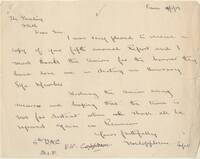 The Secretary
Dear Sir,
I was very pleased to receive a
copy of your fifth annual report and I
must thank the Union for the honour they
have done me in electing me Honorary
Life Member
Wishing the Union every
success and hoping that the time is
not far distant when we shall all be
united again in
Yours faithfully
A.I.F.